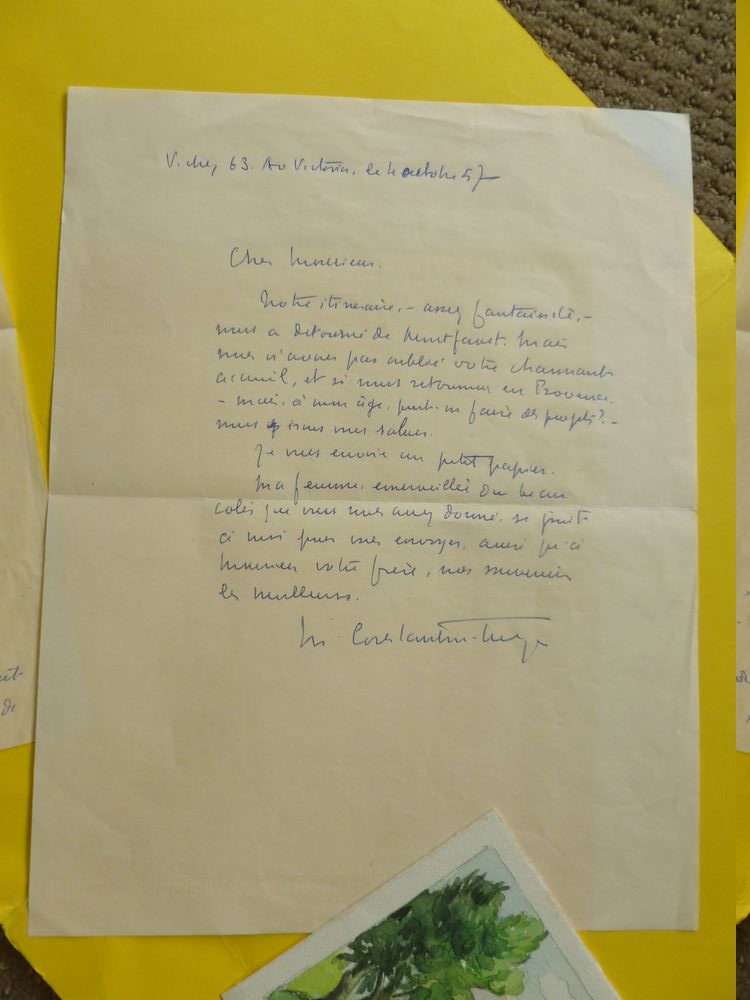 Vichy, 63. Av Victoria, le 4 octobre 57
Cher Monsieur,
Notre itineraire, - assez fantaisiste, -
nous a detourné de Montfavet. Mais
nous n'avons pas oublié votre charmant
accueil, et si nous retournons en Provence
- mais, à mon âge, peut-on faire des projets? -
nous irons vous saluer.
Je vous envoie un petit papier.
Ma femme, emerveillée du beau
colis que vous nous avez donné, se joint
à moi pour vous envoyer, ainsi qu'à
Monsieur votre frère, nos souvenirs
les meilleurs.
M. Constantin-Weyer
de